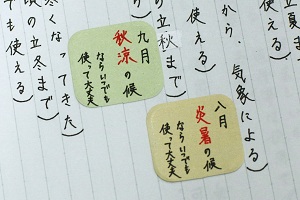 立夏ま
から、気象による)
使える)
の立秋まで
使える)
八月
炎暑の候
ならいつでも
使って大丈夫
九月
秋涼の候
ならいつでも
使って大丈夫
寒くなってきた)
の立冬まで
でも使える)